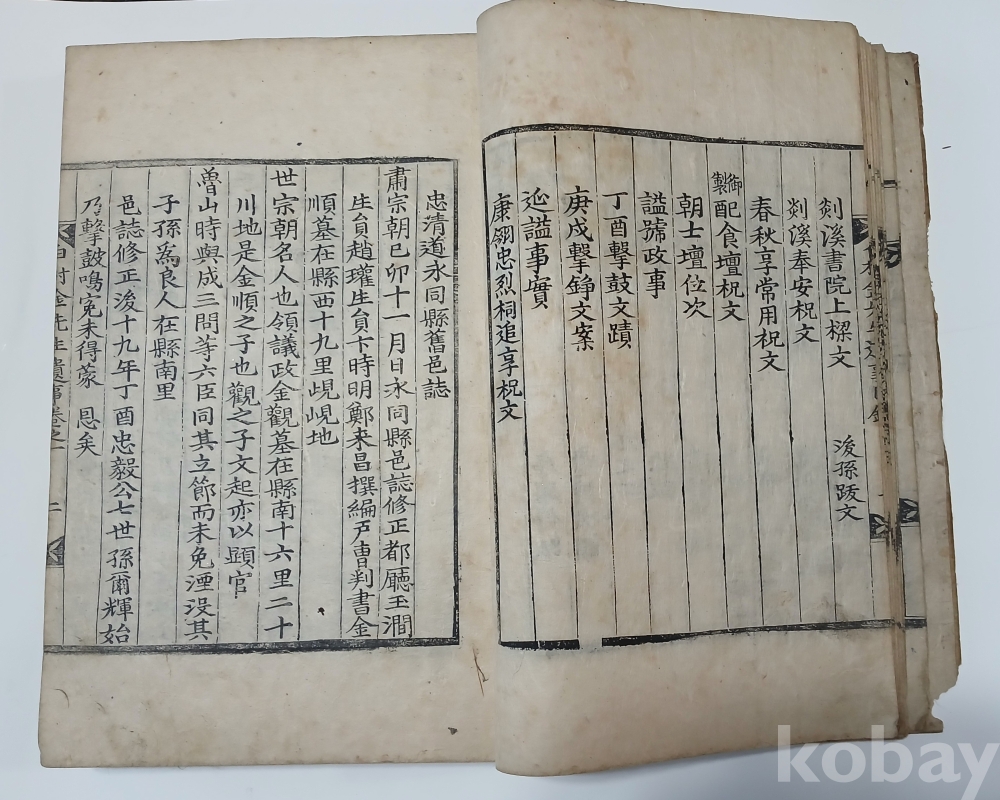 剡溪書院上樑文 後孫跋文
剡溪奉安祝文
春秋享常用祝文
御製配食壇祝文
朝士壇位次
諡號政事
丁酉擊鼓文蹟
庚戌擊錚文案
延諡事實
康翎忠烈祠追享祝文
忠清道永同縣舊邑誌
肅宗朝已卯十一月日永同縣邑誌修正都廳玉澗
生員趙瓘生員卞時明鄭來昌撰編戶曹判書金
順墓在縣西十九里峴峴地
世宗朝名人也領議政金觀墓在縣南十六里二十
川地是金順之子也觀之子文起亦以顯官
魯山時與成三問等六臣同其立節而未免湮沒其
子孫爲良人在縣南里
邑誌修正後十九年丁酉忠毅公七世孫爾輝始
乃擊鼓鳴寃未得蒙 恩矣
白村金先生遺事卷之一 二
kobay